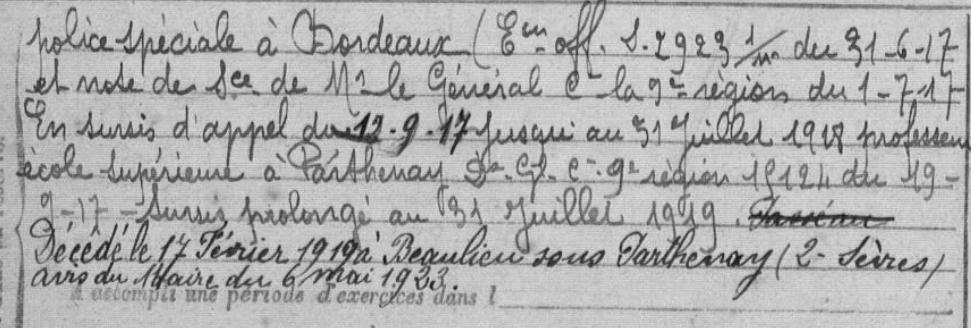 police spéciale à Bordeaux (Em off. S. 2923 1/m du 31-6-17
et note de Sce de Mr le Général Ct la 9e région du 1-7-17
En sursis d'appel du 12.9.17 jusqu'au 31 Juillet 1918 professeur
école supérieure à Parthenay Don. Gl. Ct 9e région 15124 du 19-
9-17 - Sursis prolongé au 31 Juillet 1919.
Décédé le 17 Février 1919 à Beaulieu sous Parthenay (2- Sèvres)
avis du Maire du 6 mai 1923.
a accompli une période d'exercices dans l